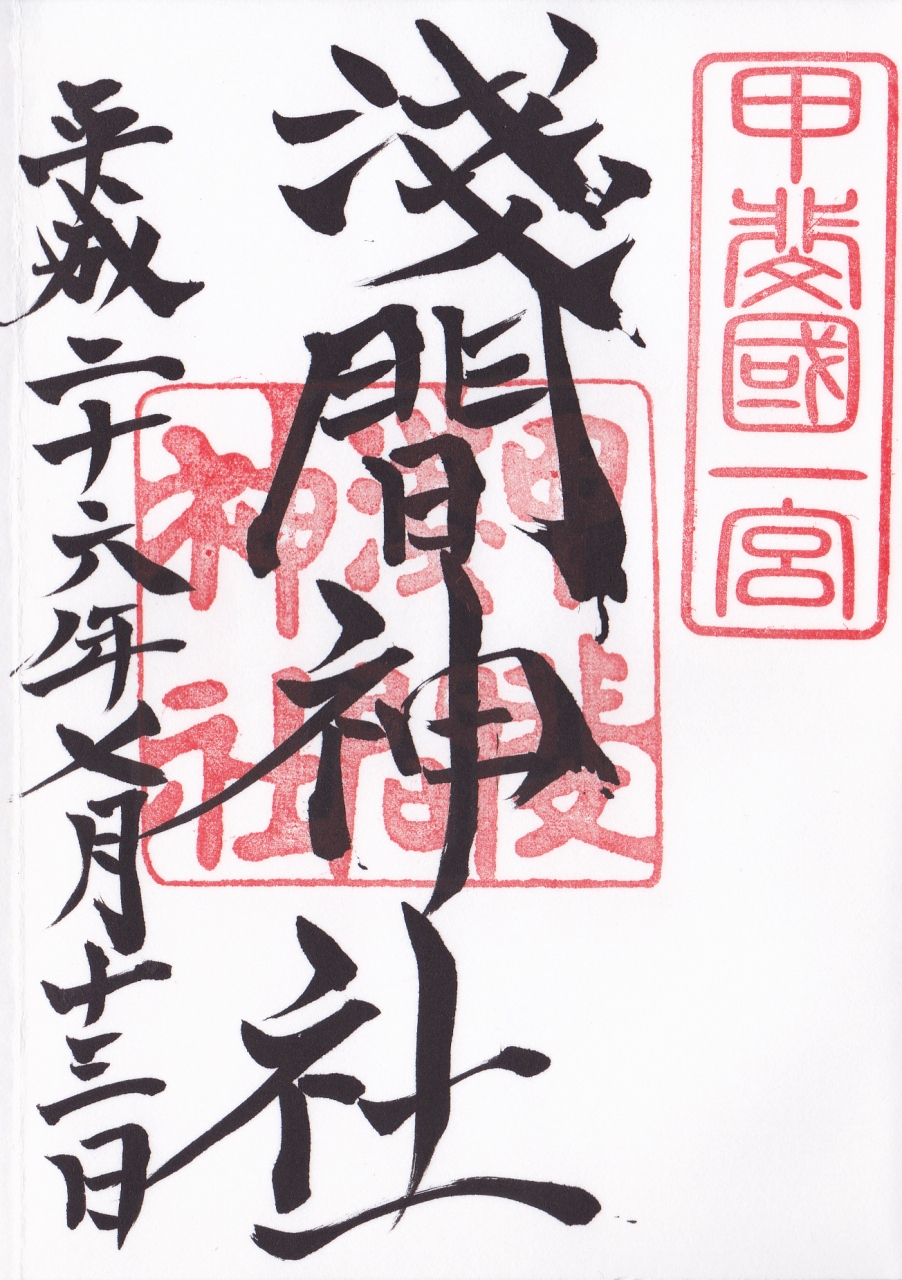 甲斐國一宮
淺間神社
甲斐
淺間
神社
平成二十六年七月十三日